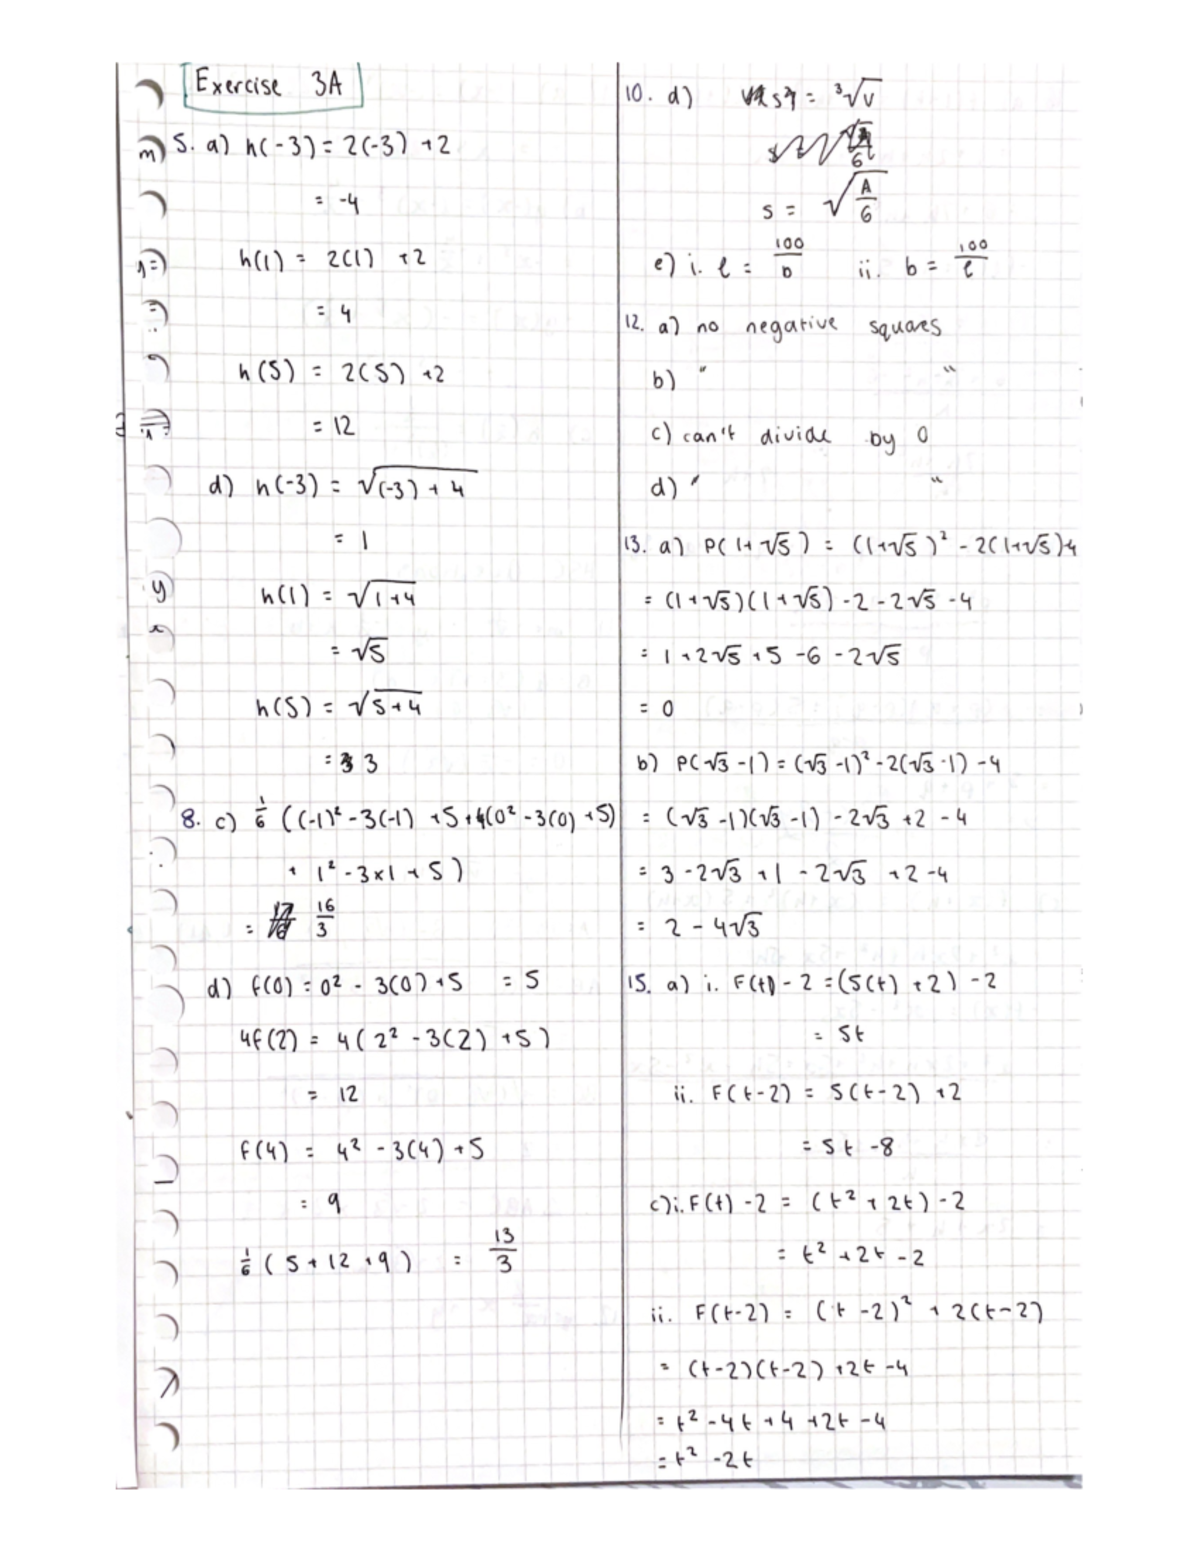 Exercise 3A
5. a) h(-3) = 2(-3) + 2
= -4
h(1) = 2(1) + 2
= 4
h(5) = 2(5) + 2
= 12
d) h(-3) = √((-3) + 4)
= 1
h(1) = √(1+4)
= √5
h(5) = √(5+4)
= 3
8. c) 1/6 ((-1)² - 3(-1) + 5 + 4(0² - 3(0) + 5)
+ 1² - 3×1 + 5)
= 16/3
d) f(0) = 0² - 3(0) + 5 = 5
4f(2) = 4(2² - 3(2) + 5)
= 12
f(4) = 4² - 3(4) + 5
= 9
1/6 (5 + 12 + 9) = 13/3
10. d) s = ³√v
s = √(A/6)
e) i. ℓ = 100/b ii. b = 100/ℓ
12. a) no negative squares
b) " "
c) can't divide by 0
d) " "
13. a) P(1+√5) = (1+√5)² - 2(1+√5)-4
= (1+√5)(1+√5) - 2 - 2√5 - 4
= 1 + 2√5 + 5 - 6 - 2√5
= 0
b) P(√3 - 1) = (√3 - 1)² - 2(√3 - 1) - 4
= (√3 - 1)(√3 - 1) - 2√3 + 2 - 4
= 3 - 2√3 + 1 - 2√3 + 2 - 4
= 2 - 4√3
15. a) i. F(t) - 2 = (5(t) + 2) - 2
= 5t
ii. F(t-2) = 5(t-2) + 2
= 5t - 8
c) i. F(t) - 2 = (t² + 2t) - 2
= t² + 2t - 2
ii. F(t-2) = (t-2)² + 2(t-2)
= (t-2)(t-2) + 2t - 4
= t² - 4t + 4 + 2t - 4
= t² - 2t